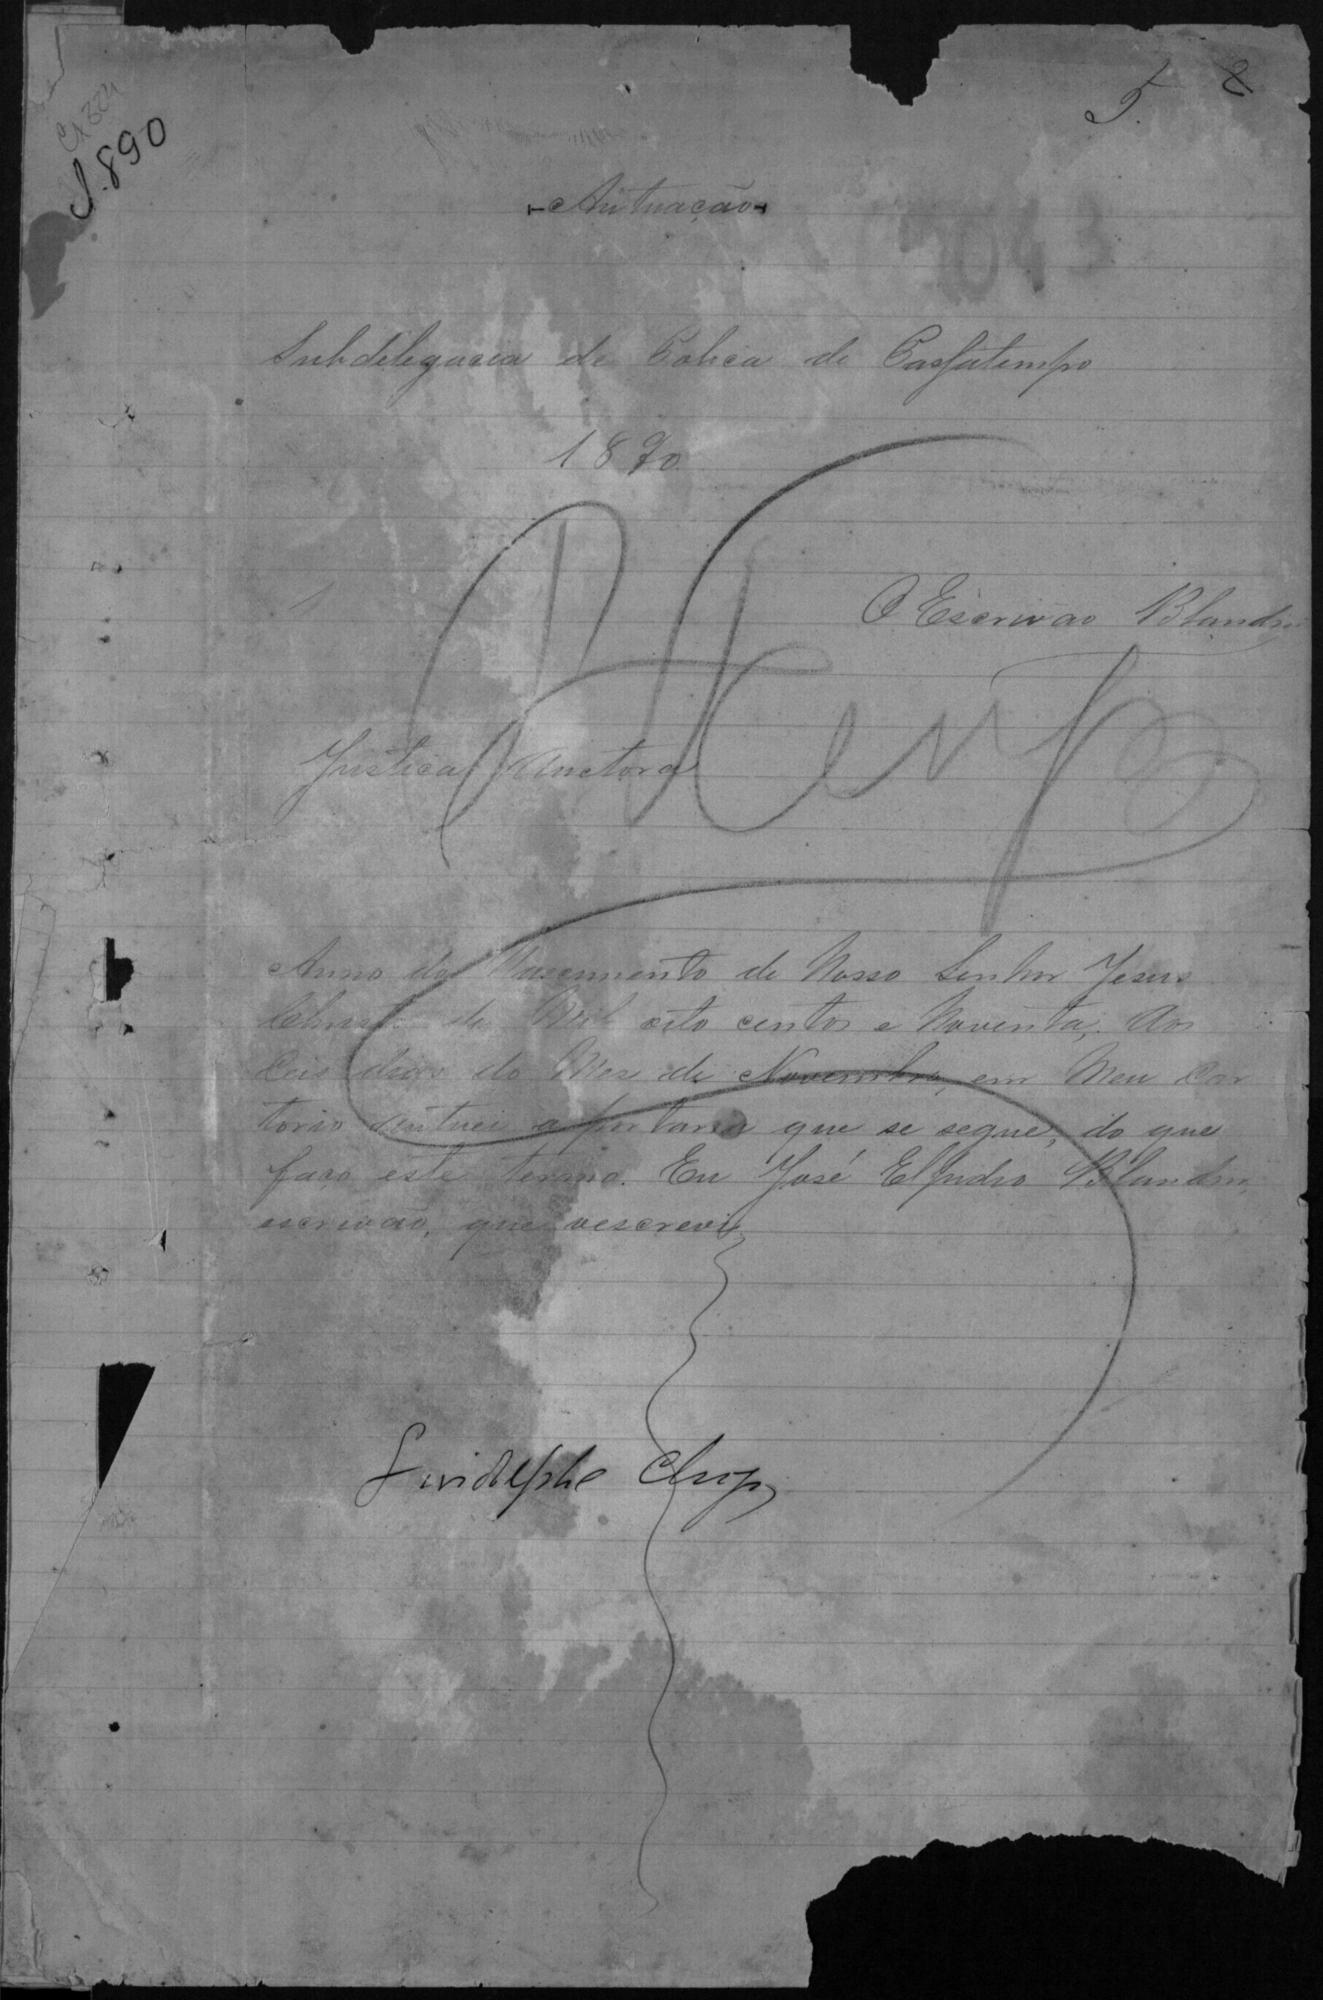 Cx 304
J. 890
5. 8
Autuação
7043
Subdelegacia de Policia de Passatempo
1890
O Escrivão Blandin
Justica Auctora
Anno do Nascimento de Nosso Senhor Jesus
Christo de Mil oito centos e Noventa, Aos
Ceis dias do Mez de Novembro, em Meu Car
torio autuei a portaria que se segue, do que
faço este termo. Eu José Elpidio Blandin,
escrivão, que oescrevi